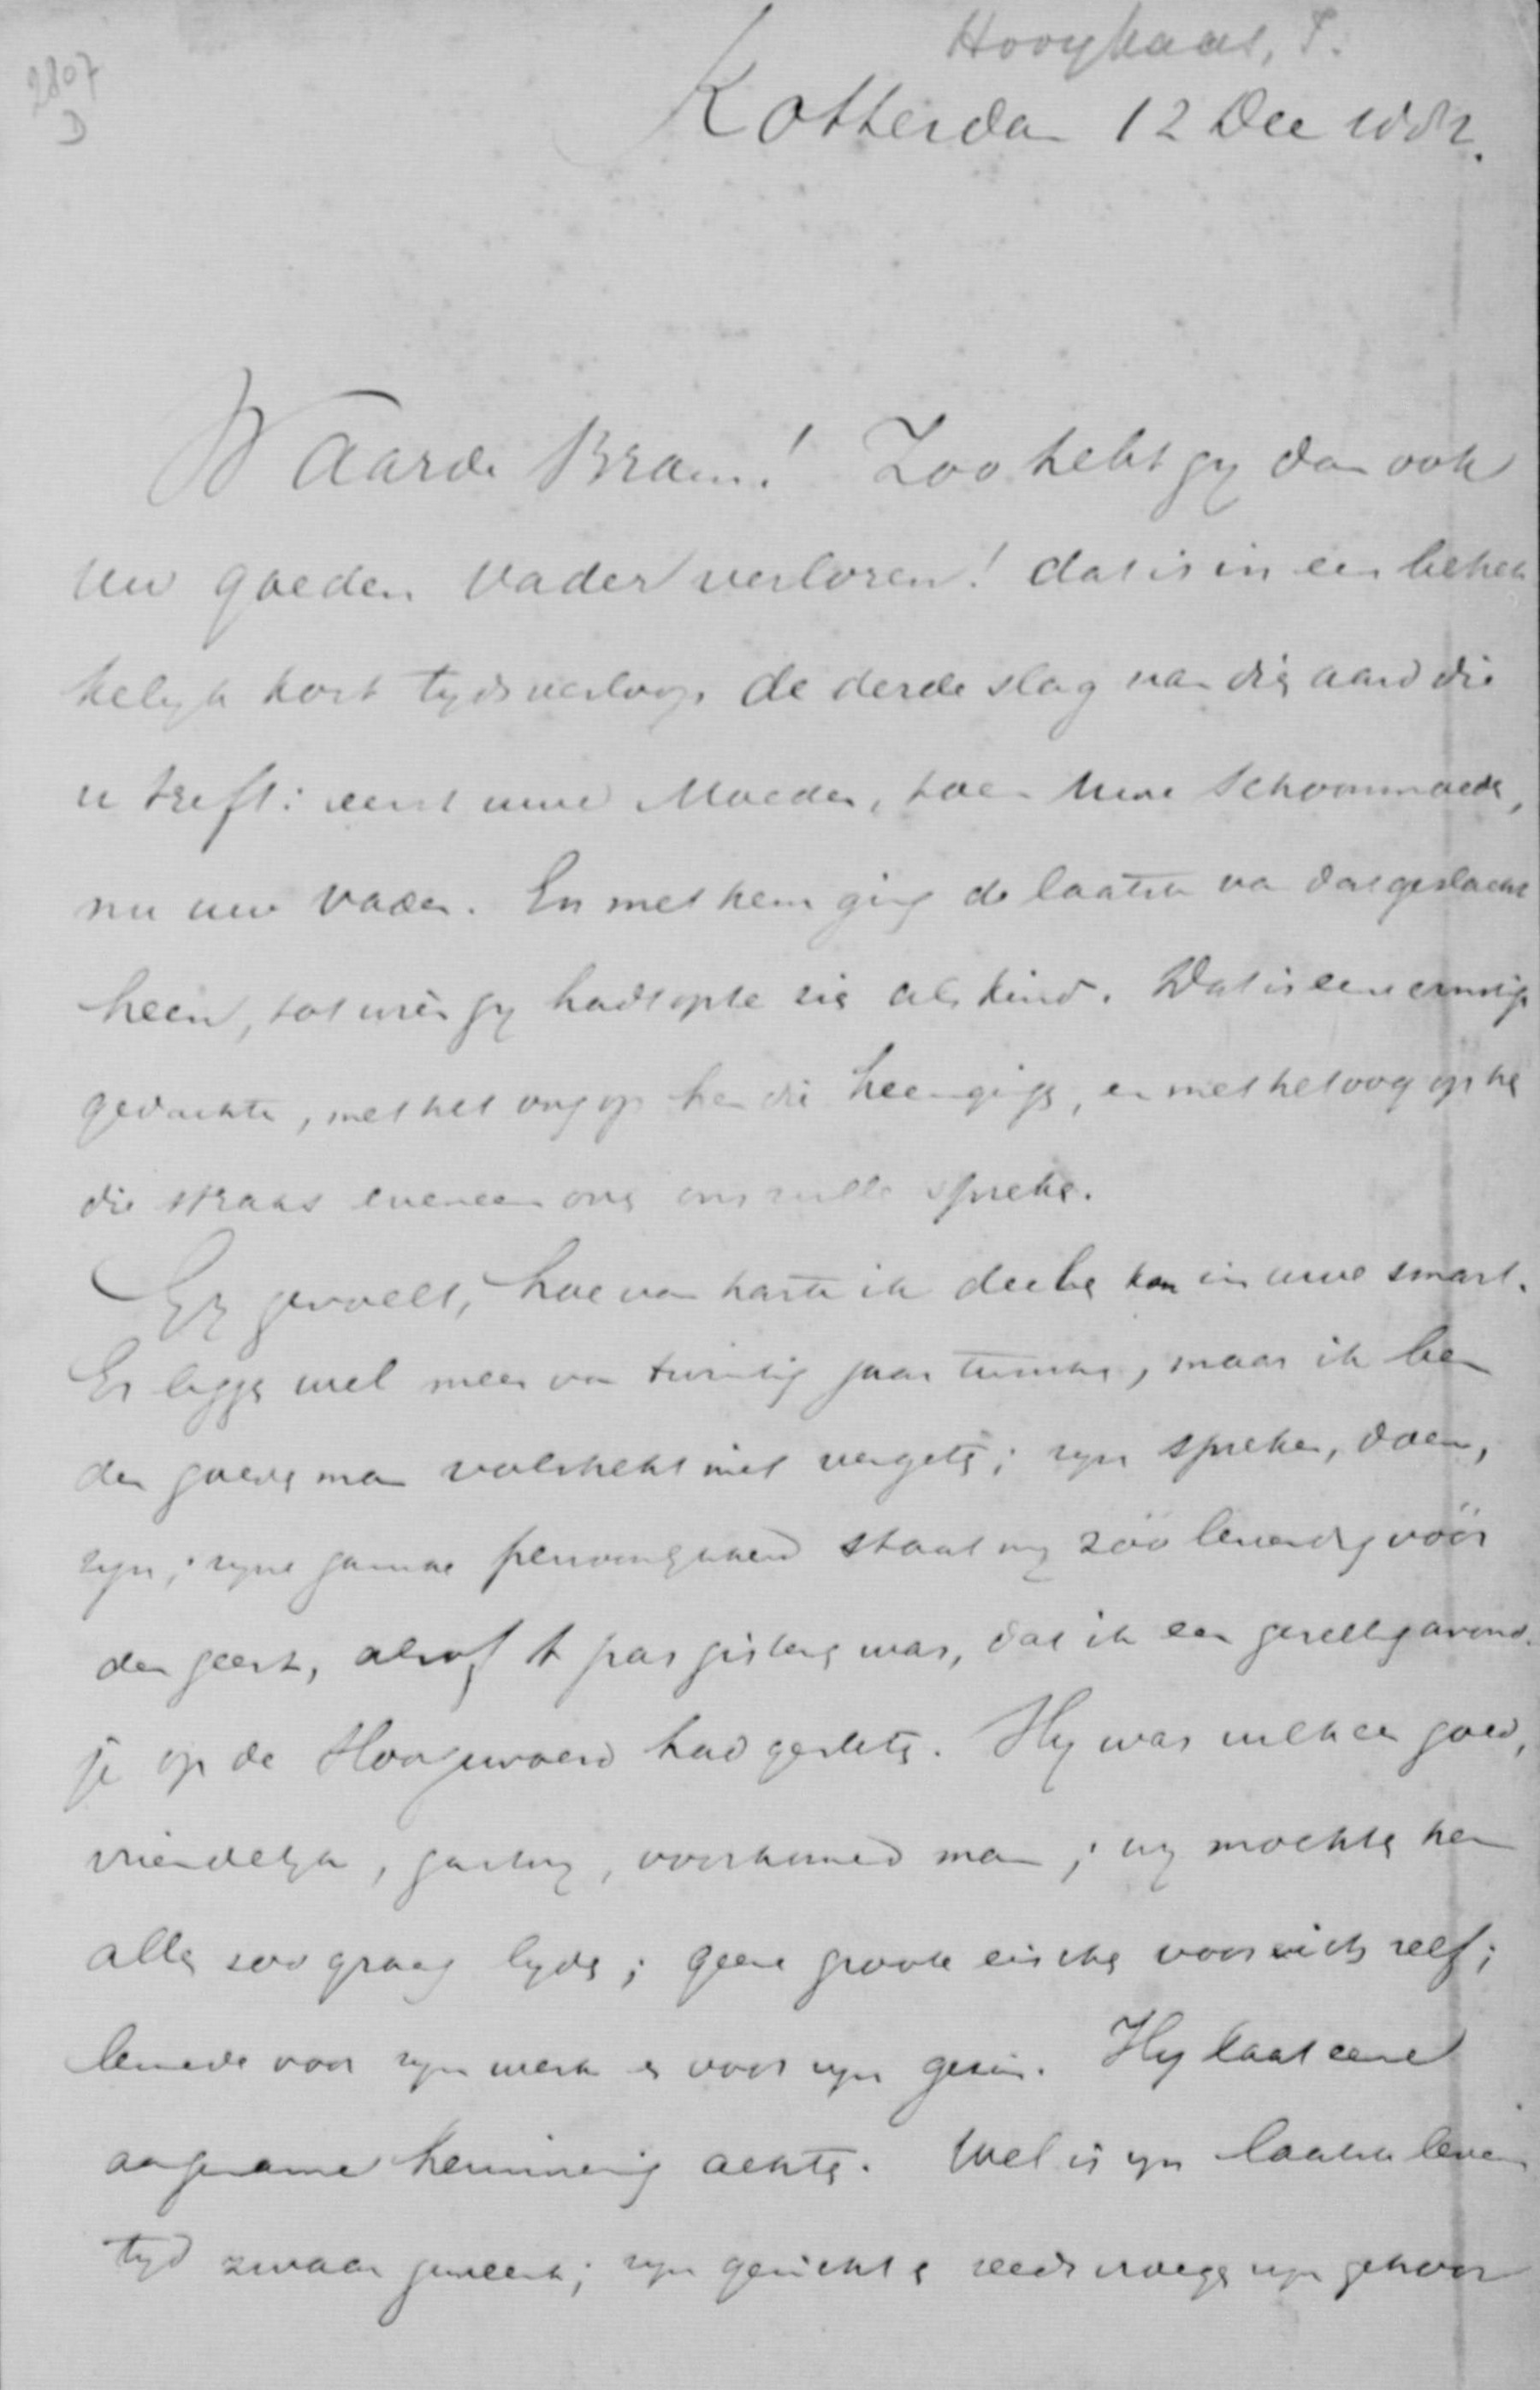 Hooykaas, I.
2807
D
Rotterdam 12 Dec 1882.
Waarde Bram! Zoo hebt gy dan ook
uw goeden Vader verloren! dat is in een betrek
kelyk kort tydsverloop de derde slag van die aard die
u treft: eerst uwe Moeder, toen uwe Schoonmoeder,
nu uw Vader. En met hem ging de laatste van dat geslacht
heen, tot wien gy hadt opte zien als kind. Dat is een ernstige
gedachte, met het oog op hen die heengingen, en met het oog op hen
die straks eveneens over ons zullen spreken.
Gy gevoelt, hoe van harte ik deelen kan in uwe smart.
Er liggen wel meer van twintig jaar tusschen, maar ik ben
den goeden man volstrekt niet vergeten; zyn spreken, doen,
zyn; zyne gansche persoonlykheid staat my zóó levendig vóór
den geest, alsof 't pas gisteren was, dat ik een gezellig avond-
je op de Hoogewoerd had gesleten. Hy was welk een goed,
vriendelyk, gastvry, voorkomend man; wy mochten hem
allen zoo graag lyden; geene groote eischen voor zich zelf;
levende voor zyn werk en voor zyn gezin. Hy laat eene
aangename herinnering achter. Wel is zyn laatste levens
tyd zwaar geweest; zyn gezicht en reeds vroeger zyn gehoor